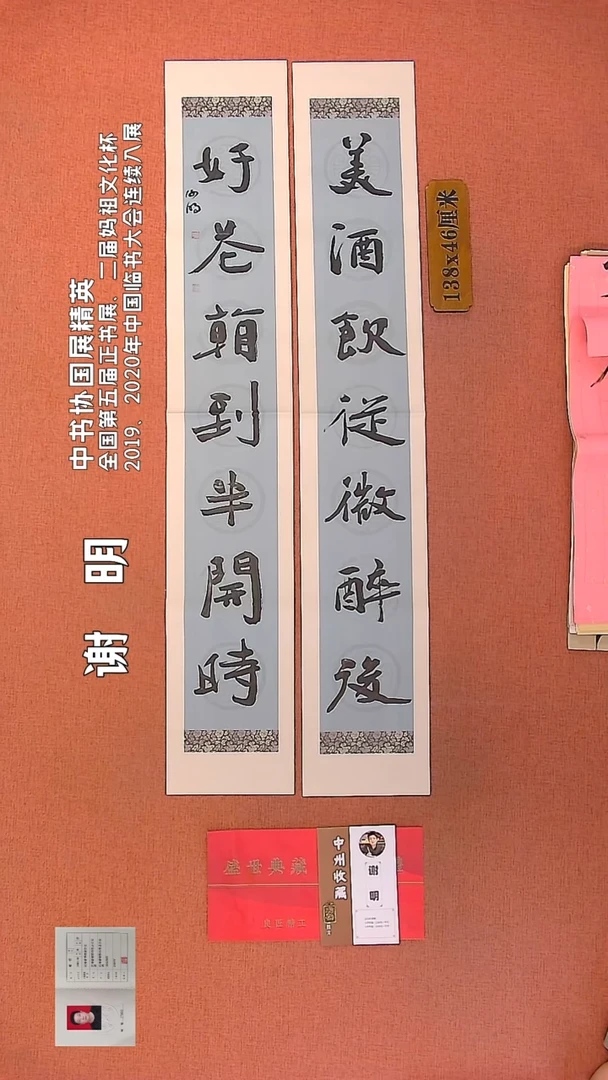 美酒飲從微醉後
好花朝到半開時
138x46厘米
谢 明
中书协国展精英
全国第五届正书展、二届妈祖文化杯
2019、2020年中国临书大会连续入展
盛世典藏
良匠精工
中州收藏
谢 明